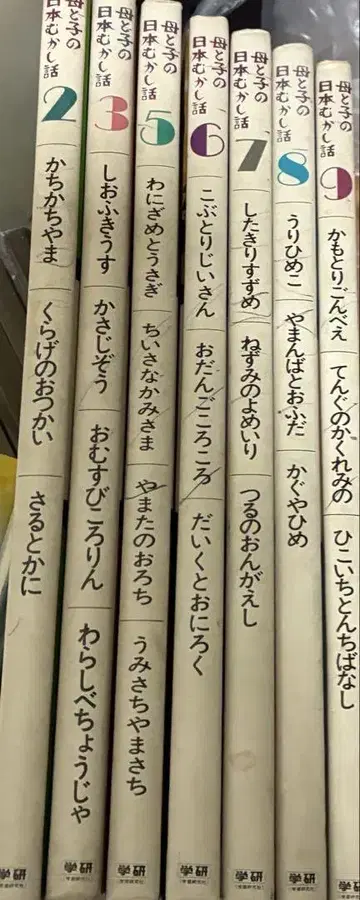 母と子の
日本むかし話
2
かちかちやま
くらげのおつかい
さるとかに
母と子の
日本むかし話
3
しおふきうす
かさじぞう
おむすびころりん
わらしべちょうじゃ
研
学
母と子の
日本むかし話
5
わにざめとうさぎ
ちいさなかみさま
やまたのおろち
うみさちやまさち
研
学
母と子の
日本むかし話
6
こぶとりじいさん
おだんごころころ
だいくとおにろく
研
学
母と子の
日本むかし話
7
したきりすずめ
ねずみのよめいり
つるのおんがえし
研
学
母と子の
日本むかし話
8
うりひめこ
やまんばとおふだ
かぐやひめ
研
学
母と子の
日本むかし話
9
かもとりごんべえ
てんぐのかくれみの
ひこいちとんちばなし
研
学